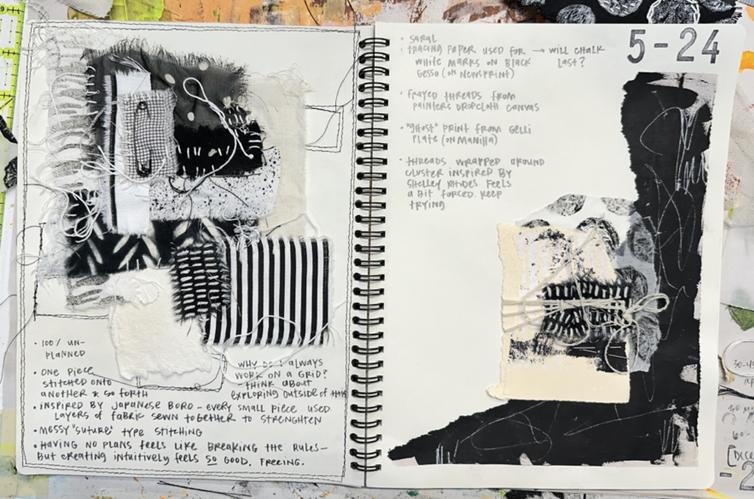 • 100% UN-
PLANNED
• ONE PIECE
STITCHED ONTO
ANOTHER & SO FORTH
WHY DO I ALWAYS
WORK ON A GRID?
THINK ABOUT
EXPLORING OUTSIDE OF THIS
• INSPIRED BY JAPANESE BORO – EVERY SMALL PIECE USED
LAYERS OF FABRIC SEWN TOGETHER TO STRENGHTEN
• MESSY "SUTURE" TYPE STITCHING
• HAVING NO PLANS FEELS LIKE BREAKING THE RULES–
BUT CREATING INTUITIVELY FEELS SO GOOD. FREEING.
5-24
• SARAL
TRACING PAPER USED FOR → WILL CHALK
WHITE MARKS ON BLACK LAST?
GESSO (ON NEWSPRINT)
• FRAYED THREADS FROM
PAINTERS DROPCLOTH CANVAS
• "GHOST" PRINT FROM GELLI
PLATE (ON MANILLA)
• THREADS WRAPPED AROUND
CLUSTER INSPIRED BY
SHELLEY RHODES FEELS
A BIT FORCED. KEEP
TRYING